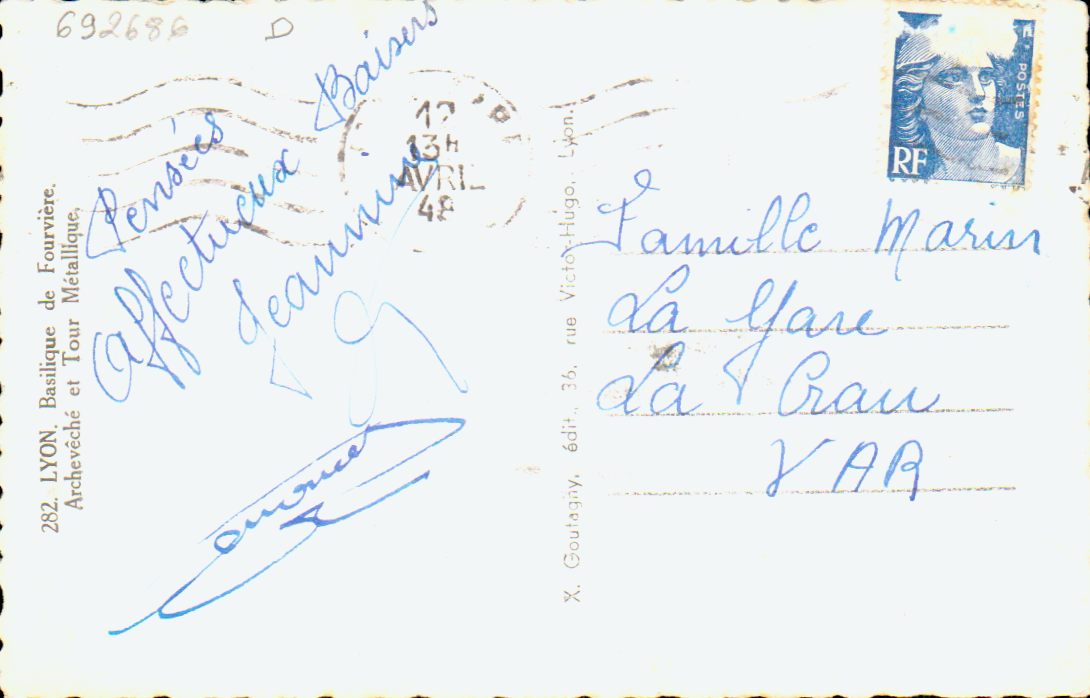 692686 D
282. LYON. Basilique de Fourvière.
Archevêché et Tour Métallique,
Pensées
Affectueux Baisers
Jeannine
13H
AVRIL
X. Goutagny, édit., 36, rue Victor-Hugo, Lyon.
POSTES
RF
Famille Marin
La Gare
La Crau
VAR